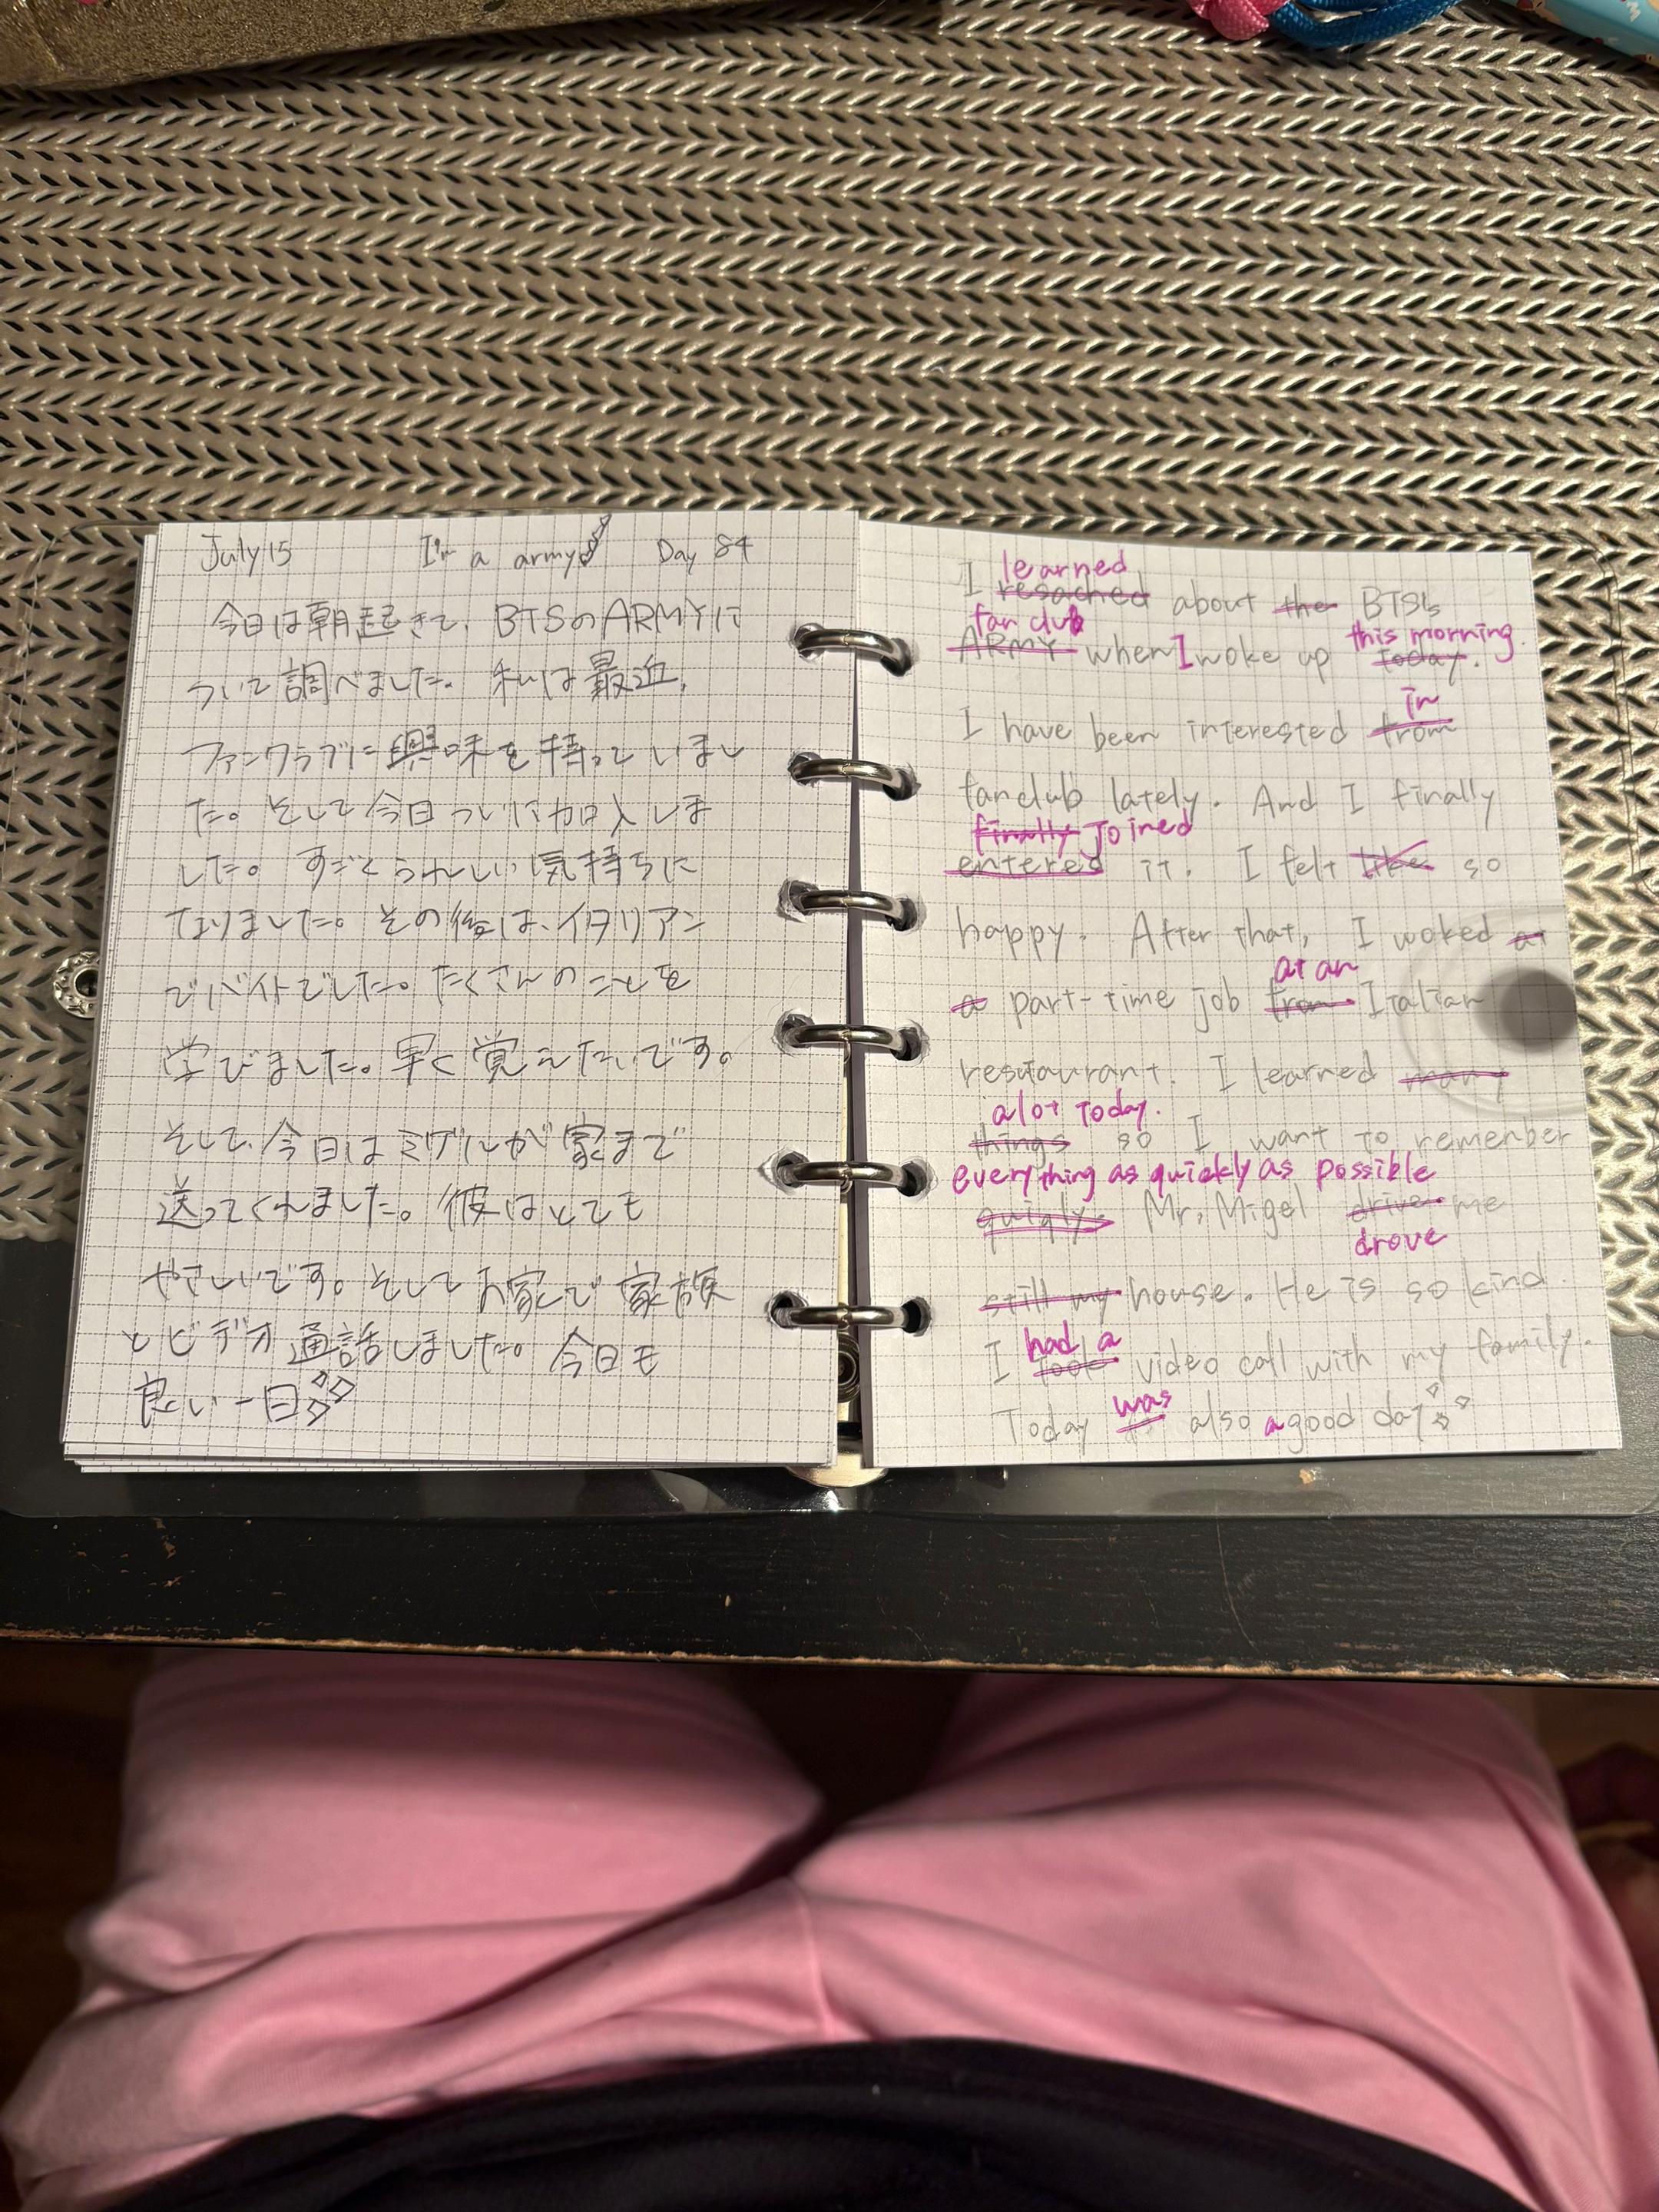 July 15 I'm a army Day 84
今日は朝起きて、BTSのARMYに
ついて調べました。私は最近、
ファンクラブに興味を持っていまし
た。そして今日ついに加入しま
した。すごくうれしい気持ちに
なりました。その後は、イタリアン
でバイトでした。たくさんのことを
学びました。早く覚えたいです。
そして、今日はミゲルが家まで
送ってくれました。彼はとても
やさしいです。そしてお家で家族
とビデオ通話しました。今日も
良い一日
learned
I resached about the BTS's
fan club this morning.
ARMY when I woke up today.
in
I have been interested from
fanclub lately. And I finally
finally joined
entered it. I felt like so
happy. After that, I woked at
at an
a part-time job from Italian
restaurant. I learned many
a lot today.
things so I want to remenber
everything as quickly as possible
quiqly. Mr. Migel drive me
drove
still my house. He is so kind.
had a
I took video call with my family.
was
Today also a good day